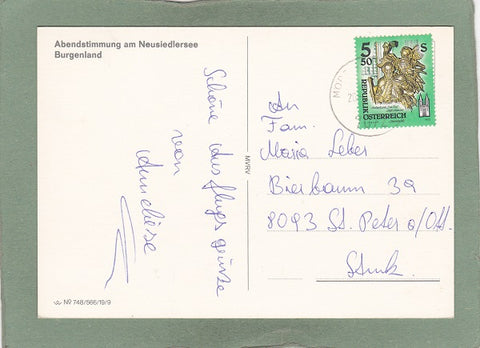 Abendstimmung am Neusiedlersee
Burgenland
Schöne Ausflugsgrüsse
von
Anneliese
MVRV
Nº 748/566/19/9
5
50
S
REPUBLIK
ÖSTERREICH
An
Fam.
Maria Leber
Bierbaum 39
8093 St. Peter o/Ott.
Stmk.